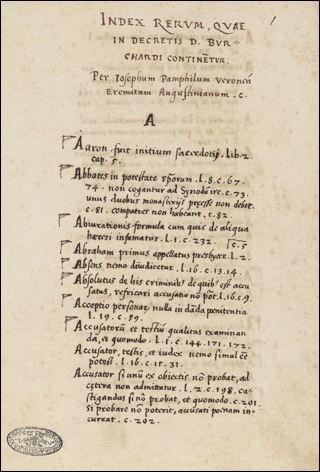 INDEX RERUM, QUAE
IN DECRETIS D. BUR-
CHARDI CONTINĒTUR.
Per Iosephum Pamphilum Veronēn
Eremitam Augustinianum. c.
A
Aaron fuit initium sacerdotij. lib. 2.
cap. 5.
Abbates in potestate epōrum. l. 8. c. 67.
74. non cogantur ad synodū ire. c. 73.
unus duobus monasterijs preesse non debet.
c. 81. compatres non habeant. c. 82.
Abiurationis formula cum quis de aliqua
haeresi infamatur. l. 1. c. 232.
Abraham primus appellatus presbyter. l. 2. c. 5
Absens nemo diiudicetur. l. 16. c. 13. 14.
Absolutus de his criminibꝰ de quibꝰ est accu
satus, refricari accusatio nō pōt. l. 16. c. 9.
Acceptio personar nulla in dāda poenitentia
l. 19. c. 59.
Accusatorū et testiū qualitas examinan
da, et quomodo. l. 1. c. 144. 171. 172.
Accusator, testis, et iudex nemo simul eē
potest. l. 16. c. 15. 31.
Accusator si unū ex obiectis nō probat, ad
cetera non admittatur. l. 2. c. 198. cas-
tigandus si nō probat, et quomodo. c. 201.
si probare nō poterit, accusati poenam in-
currat. c. 202.